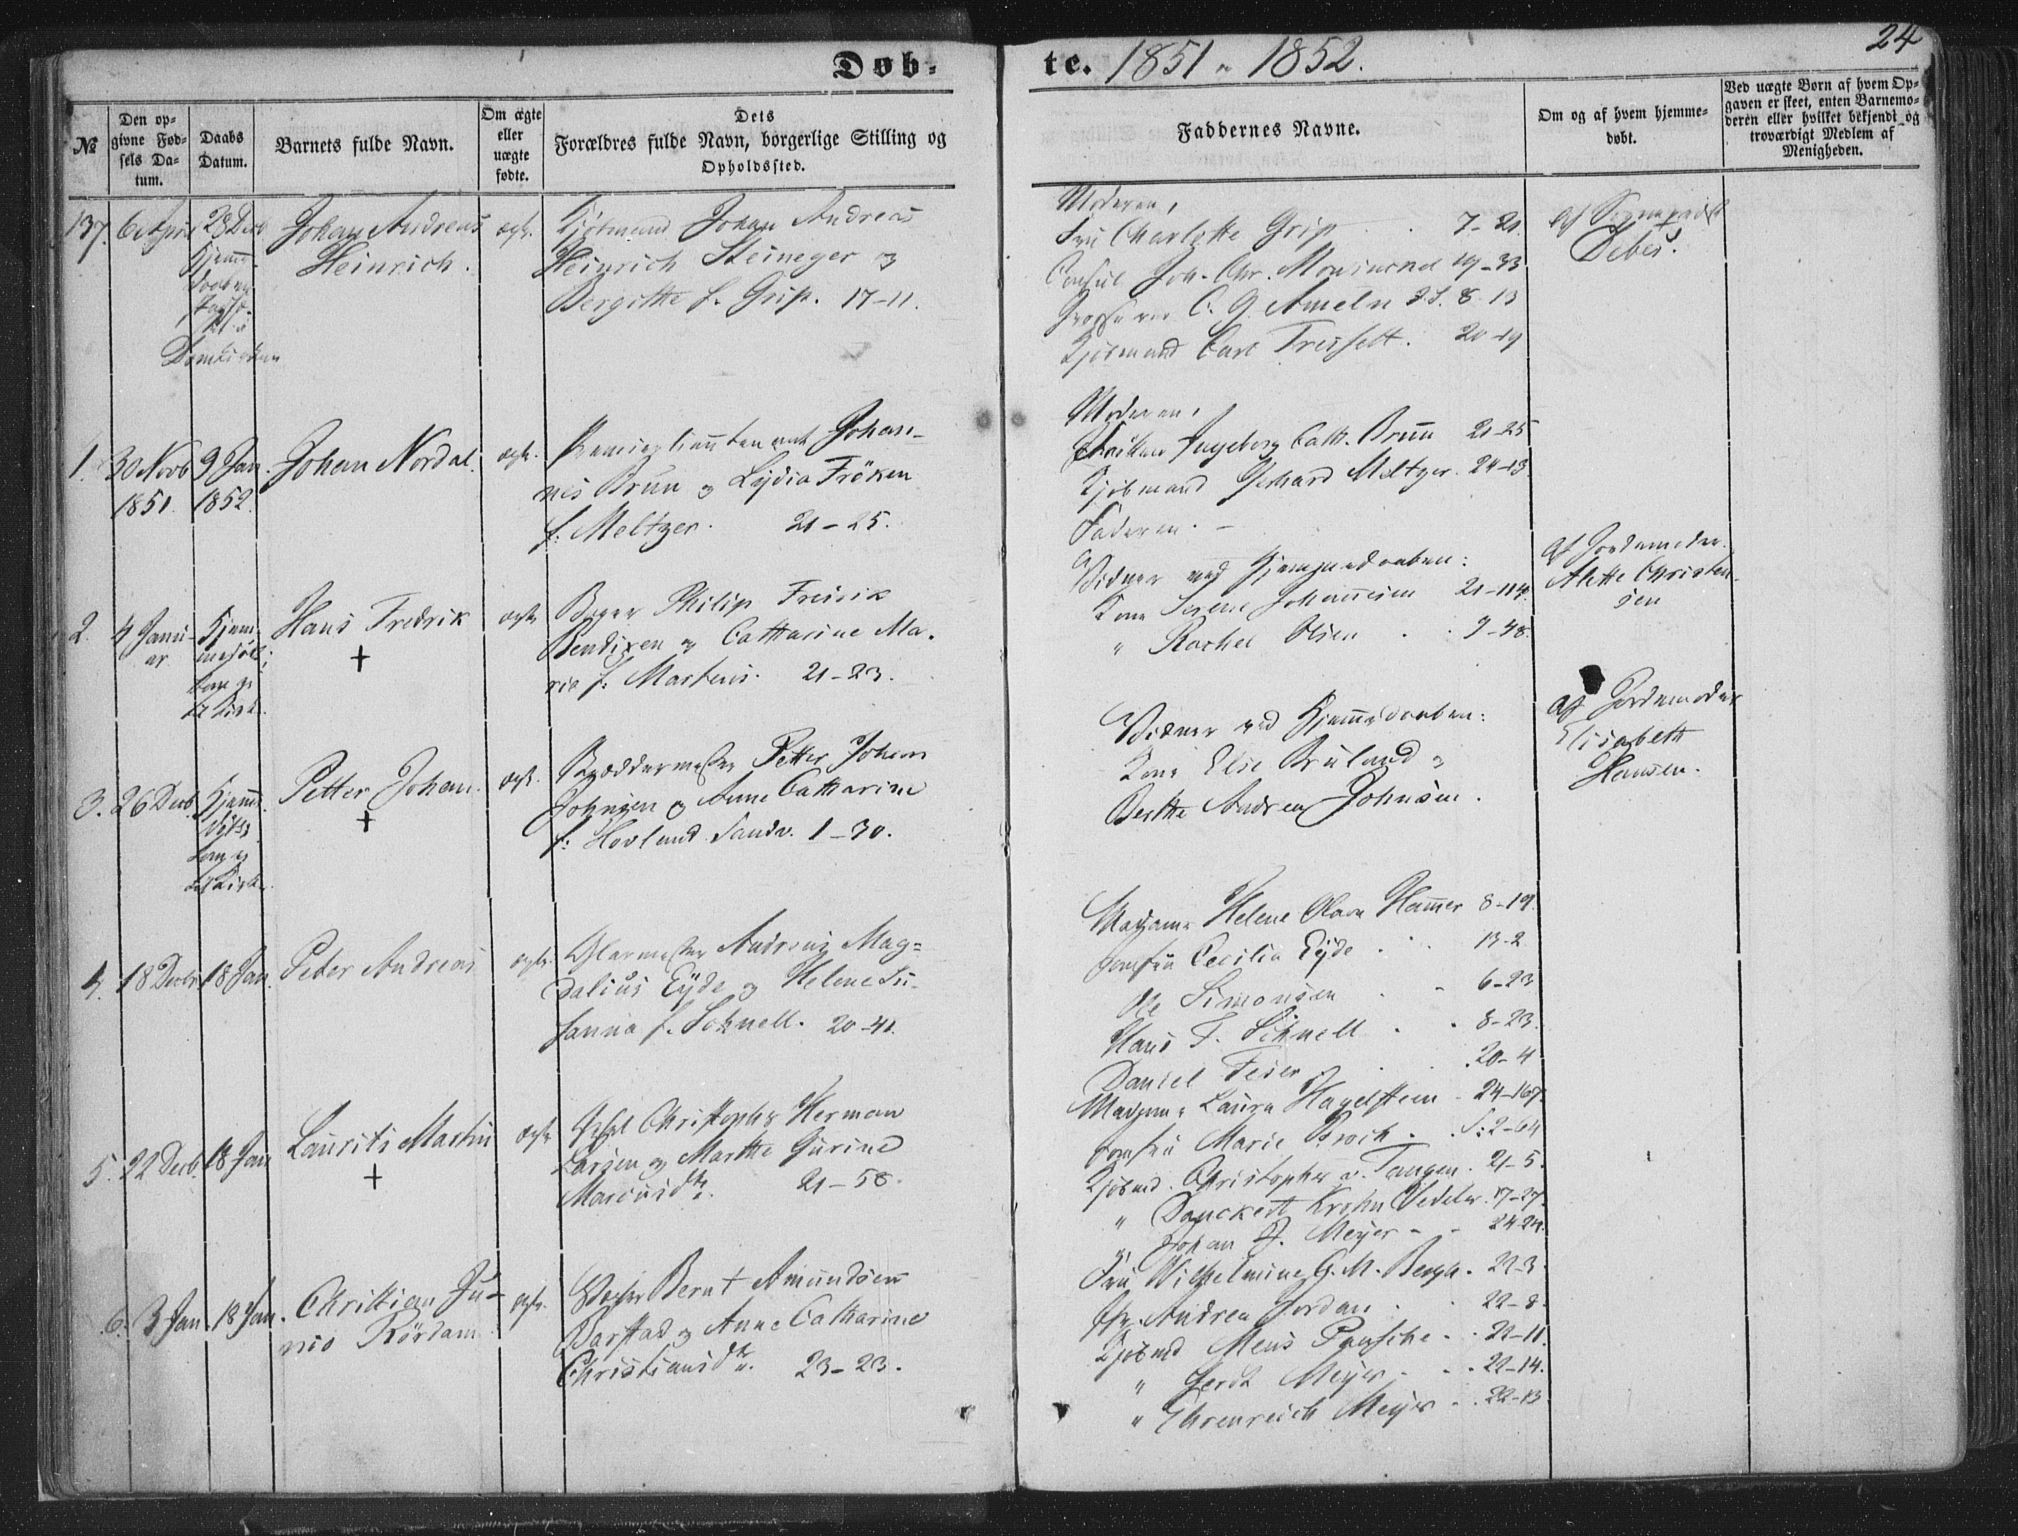 Døb-
te. 1851 - 1852.
24
№
Den op-
givne Fød-
sels Da-
tum.
Daabs
Datum.
Barnets fulde Navn.
Om ægte
eller
uægte
fødte.
Dets
Forældres fulde Navn, borgerlige Stilling og
Opholdssted.
Faddernes Navne.
Om og af hvem hjemme-
døbt.
Ved uægte Børn af hvem Op-
gaven er skeet, enten Barnemo-
deren eller hvilket bekjendt og
troværdigt Medlem af
Menigheden.
137. 6 April 28 Decb
Johan Andreas
Heinrich.
ægte.
Kjøbmand Johan Andreas
Heinrich Steineger og
Bergitthe f. Grip. 17-11.
Domkirken
Moderen,
Fru Charlotte Grip 7-21
Consul Joh. Chr. 19-33
C. G. Ameln 8-13
Kjøbmand Carl 20-19
Debes.
1. 30 Novb 9 Jan.
1851. 1852.
Johan Nordal.
ægte.
Premierlieutenant Johan-
nes Brun og Lydia Fröken
f: Meltzer. 21-25.
Moderen,
Frøken Ingeborg Cath. Brun 21-25
Kjøbmand Gerhard Meltzer. 24-13
Faderen. -
2. 4 Janu-
ar
Hjem-
Hans Fredrik
+
ægte
Philip Fredrik
Bendixen og Catharine Ma-
rie f: Martens. 21-23.
Vidner ved Hjemmedaaben:
Kone Serene Johannesen 21-114.
" Rachel Olsen 9-48.
Af Jordemoder
Alette Christen-
sen
3. 26 Decb
Hjemme
Petter Johan.
+
ægte.
Petter Johan
Johnsen og Anne Catharine
f: Hovland. Sandv. 1-30.
Vidner ved Hjemmedaaben:
Kone Elie Bruland og
Berthe Andrea Johnsen.
Af Jordemoder
Elisabeth
Hansen.
4. 18 Decbr 18 Jan.
Peter Andreas
ægte.
Glarmester Andreas Mag-
dalius Eyde og Helene Su-
sanna f. Schnell. 20-41.
Madame Helene Olava Hammer 8-19.
Jomfru Cecilia Eyde 13-2
Ole Simonsen 6-23
Hans F. Schnell 8-23.
Daniel 20-4
5. 22 Decb 18 Jan
Laurits Martin
+
ægte
Christopher Herman
Larsen og Marthe Gurine
Marcusdtr. 21-58.
Madame Laura Hagelsteen 24-167.
Jomfru Marie Broch S: 2-64
Kjøbmd. Christopher v. Tangen. 21-5.
" Danckert Krohn Vedeler. 17-27.
" Johan D. Meyer 24-24.
6. 3 Jan. 18 Jan.
Christian Ju-
nio Rördam
ægte.
Bernt Amundsen
Barstad og Anne Catharine
Christiansdtr. 23-23.
Fru Wilhelmine G. M. Bergh. 22-3.
Andrea Jordan 22-8.
Kjøbmd Mens 22-11.
" Gerdt Meyer 22-14.
" Ehrenreich Meyer 22-13